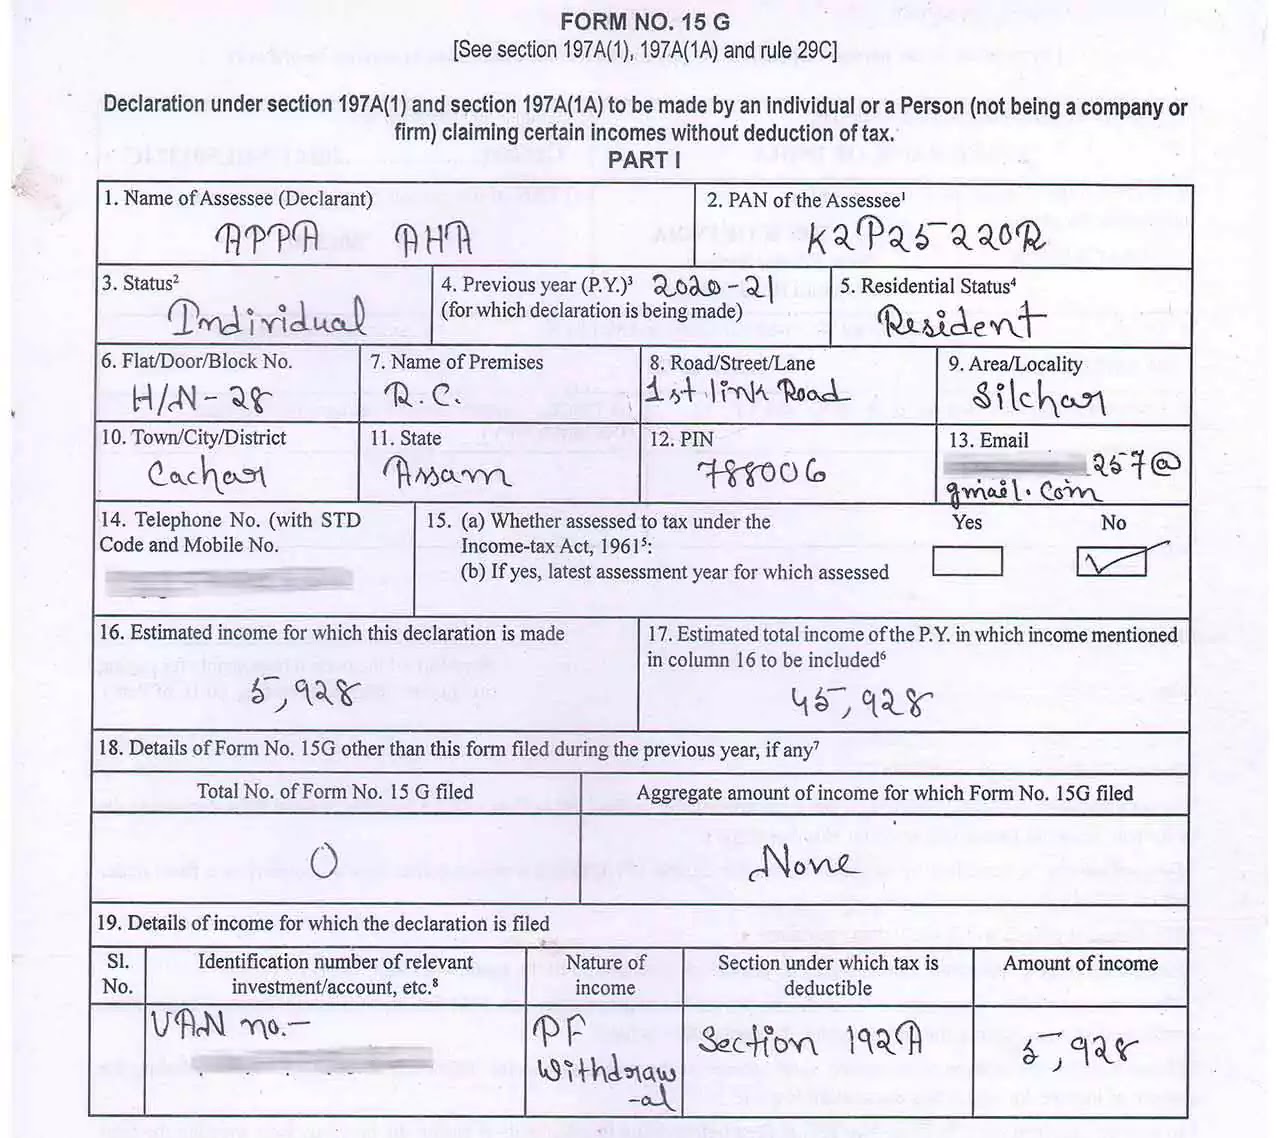 FORM NO. 15 G
[See section 197A(1), 197A(1A) and rule 29C]
Declaration under section 197A(1) and section 197A(1A) to be made by an individual or a Person (not being a company or
firm) claiming certain incomes without deduction of tax.
PART I
1. Name of Assessee (Declarant)
APPA AHA
2. PAN of the Assessee¹
K2P25220R
3. Status²
Individual
4. Previous year (P.Y.)³ 2020-21
(for which declaration is being made)
5. Residential Status⁴
Resident
6. Flat/Door/Block No.
H/N-28
7. Name of Premises
R.C.
8. Road/Street/Lane
1st link Road
9. Area/Locality
Silchar
10. Town/City/District
Cachar
11. State
Assam
12. PIN
788006
13. Email
257@
gmail.com
14. Telephone No. (with STD
Code and Mobile No.
15. (a) Whether assessed to tax under the
Income-tax Act, 1961⁵:
(b) If yes, latest assessment year for which assessed
Yes
No
16. Estimated income for which this declaration is made
5,928
17. Estimated total income of the P.Y. in which income mentioned
in column 16 to be included⁶
45,928
18. Details of Form No. 15G other than this form filed during the previous year, if any⁷
Total No. of Form No. 15 G filed
Aggregate amount of income for which Form No. 15G filed
0
None
19. Details of income for which the declaration is filed
Sl.
No.
Identification number of relevant
investment/account, etc.⁸
Nature of
income
Section under which tax is
deductible
Amount of income
UAN no.-
PF
Withdraw
-al
Section 192A
5,928